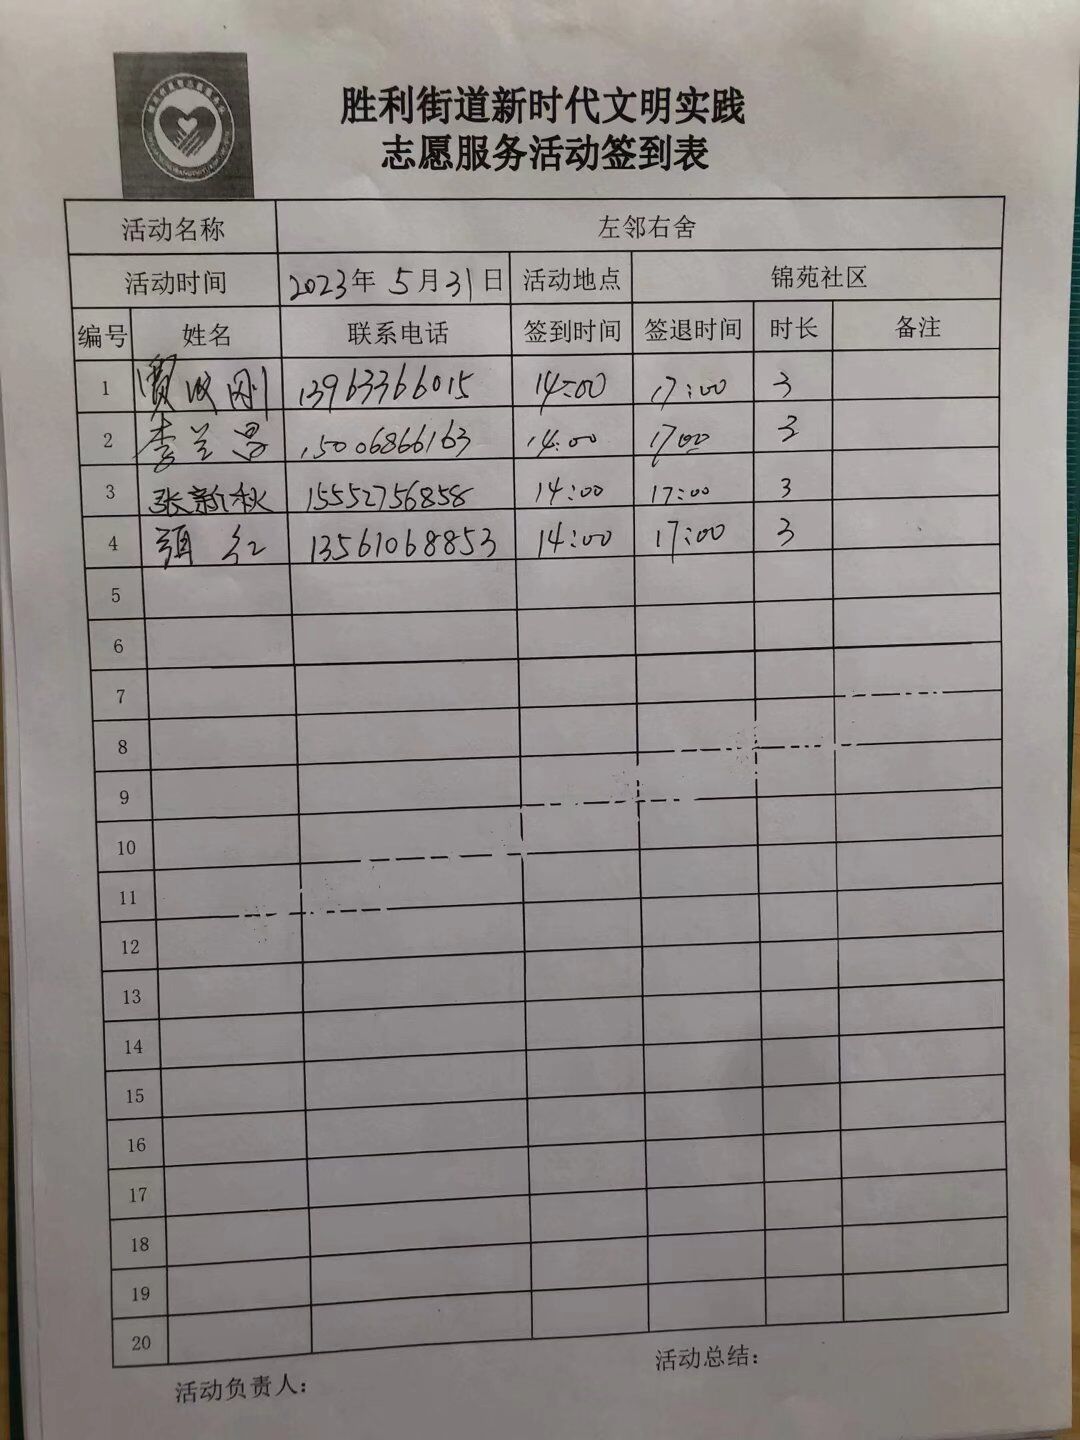 胜利街道新时代文明实践
志愿服务活动签到表
活动名称 左邻右舍
活动时间 2023年 5月31日 活动地点 锦苑社区
编号 姓名 联系电话 签到时间 签退时间 时长 备注
1 13963366015 14:00 17:00 3
2 李兰 15006866163 14:00 1700 3
3 张新秋 15552756858 14:00 17:00 3
4 红 13561068853 14:00 17:00 3
5
6
7
8
9
10
11
12
13
14
15
16
17
18
19
20
活动负责人: 活动总结: